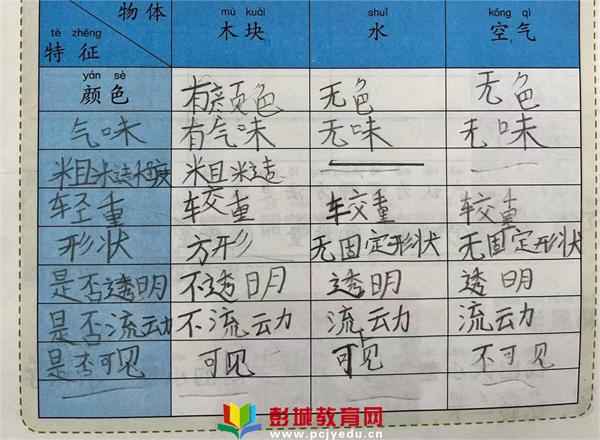 物体 mù kuài shuǐ kōng qì
木块 水 空气
tè zhēng
特征
yán sè
颜色 有颜色 无色 无色
气味 有气味 无味 无味
粗糙度 粗糙
轻重 较重 较重 较重
形状 方形 无固定形状 无固定形状
是否透明 不透明 透明 透明
是否流动 不流动 流动 流动
是否可见 可见 可见 不可见
彭城教育网
www.pcjyedu.cn